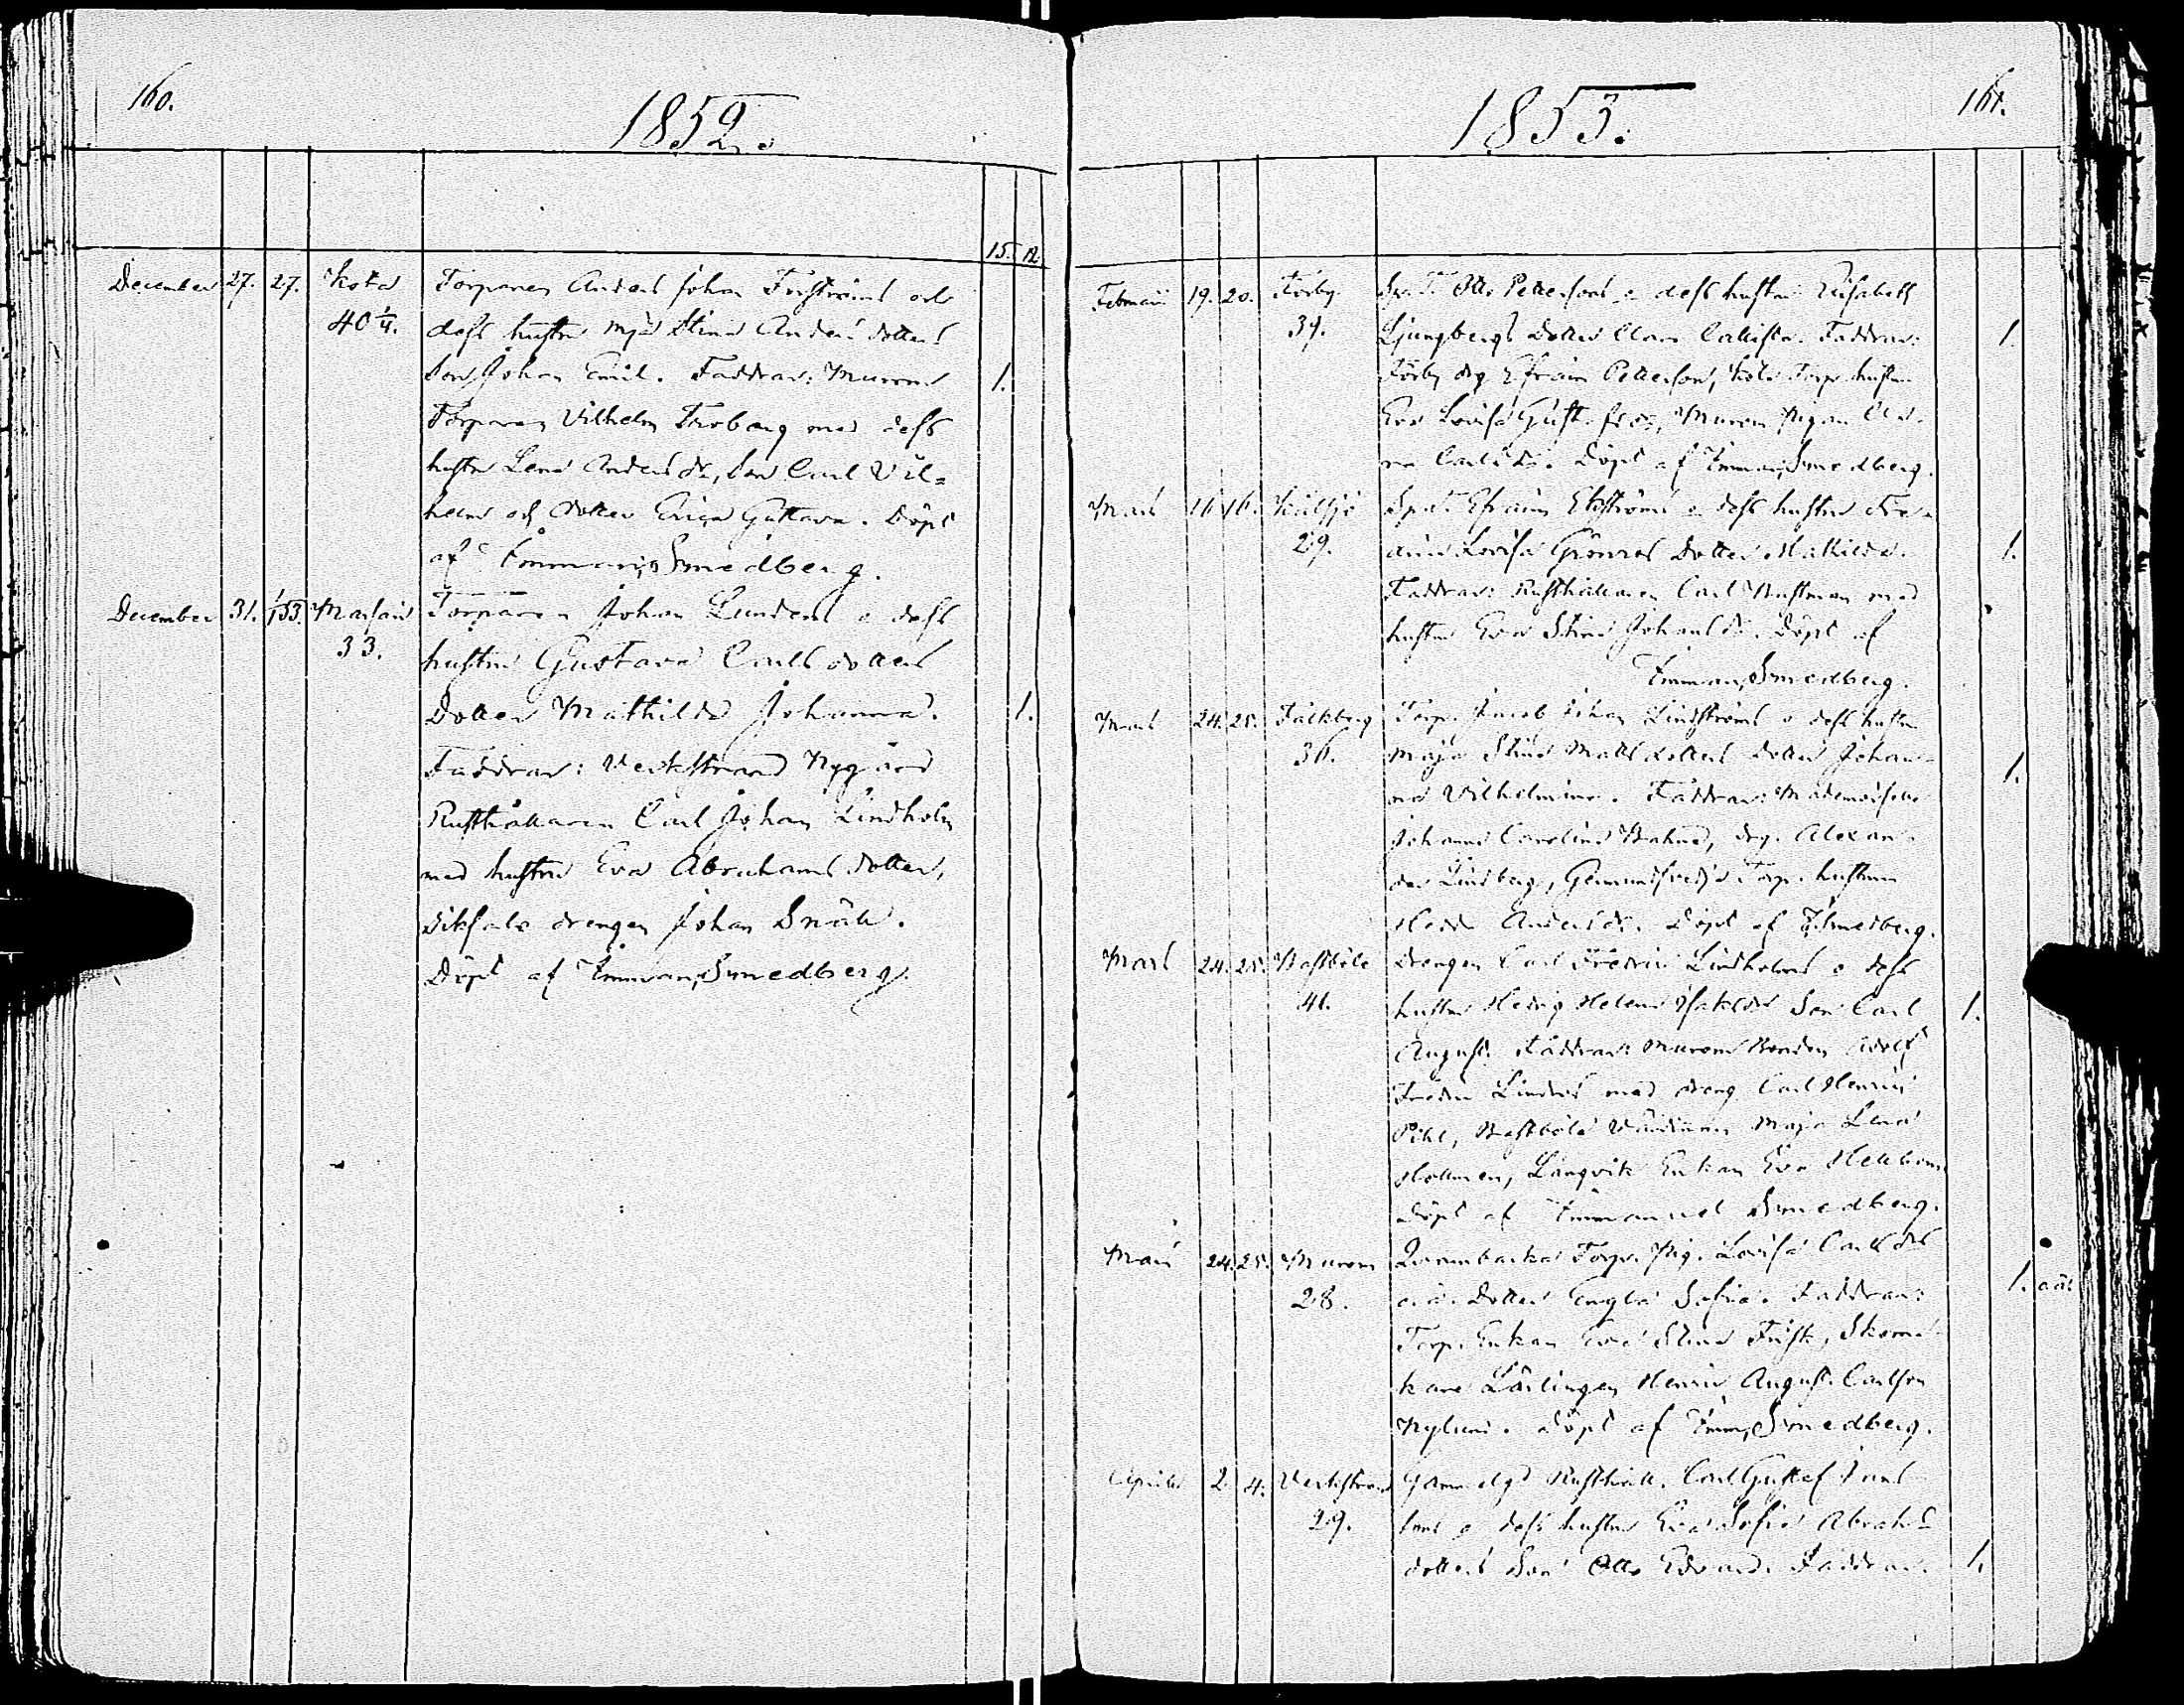 160.
1852.
15. 12.
December 27. 27. Kota Torparen Anders Johan Friströms och
40 1/4. dess hustru Maja Stina Anders dotters
Son Johan Emil. Faddrar: Murom 1.
Torparen Vilhelm Froberg med dess
hustru Lena Anders dr, Son Carl Vil=
helm och dotter Erica Gustava. Döpt
af Emman, Smedberg.
December 31. 1/1 53. Torparen Johan Lundens o dess
33. hustru Gustava Carls dotters
Dotter Mathilda Johanna. 1.
Faddrar: Verkstrand Nygård
Rusthållaren Carl Johan Lindholm
med hustru Eva Abrahams dotter,
drengen Johan Snäll.
Döpt af Emman, Smedberg.
1853.
161.
Februarii 19. 20. Förby Otto Pettersons o dess hustru Elisabeth
39. Ljungbergs Dotter Clara Callista. Faddrar: 1.
Förby drg Efraim Petterson, Kota Torp. hustru
Eva Lovisa Gust. Murom Pigan
Carls dr. Döpt af Emman, Smedberg.
Mars 16 16. Efraim Ekströms o dess hustru
29. Lovisa Grönros Dotter Mathilda. 1.
Faddrar: Rusthållaren Carl med
hustru Eva Stina Johans dr. Döpt af
Emman, Smedberg.
Mars 24. 25. Falkberg Torp. Jacob Johan Lindströms o dess hustru
36. Maja Stina Matts dotters dotter Johan=
na Vilhelmina. Faddrar: Mademoiselle 1.
Johanna Carolina drg. Alexan=
der Lindberg, Torp. hustrun
Hedda Anders dr. Döpt af E. Smedberg.
Mars 24. 25. Bastböle Drengen Carl Fredric Lindholms o dess
41. hustru Hedvig Helena Isaks dr Son Carl 1.
August. Faddrar: Murom Bonden Adolf
Fredric Lindros med dreng Carl Henric
Pihl, Bastböle Värdinnan Maja Lena
Långvik Enkan Eva Hellbom
Döpt af Emmanuel Smedberg.
Mars 24. 25. Murom Torp. Pig. Lovisa Carls drs
28. o.ä. Dotter Engla Sofia. Faddrar: 1. o.ä.
Torp. Enkan Eva Stina Frisk, Skoma=
kare Lärlingen Henric August Carlson
Nylund. Döpt af Emm, Smedberg.
Aprilis 2. 4. Verkstrand Rusthåll. Carl Gustaf
29. sons o dess hustru Eva Sofia Abrah.s
dotters Son Otto Edvard. Faddrar: 1.